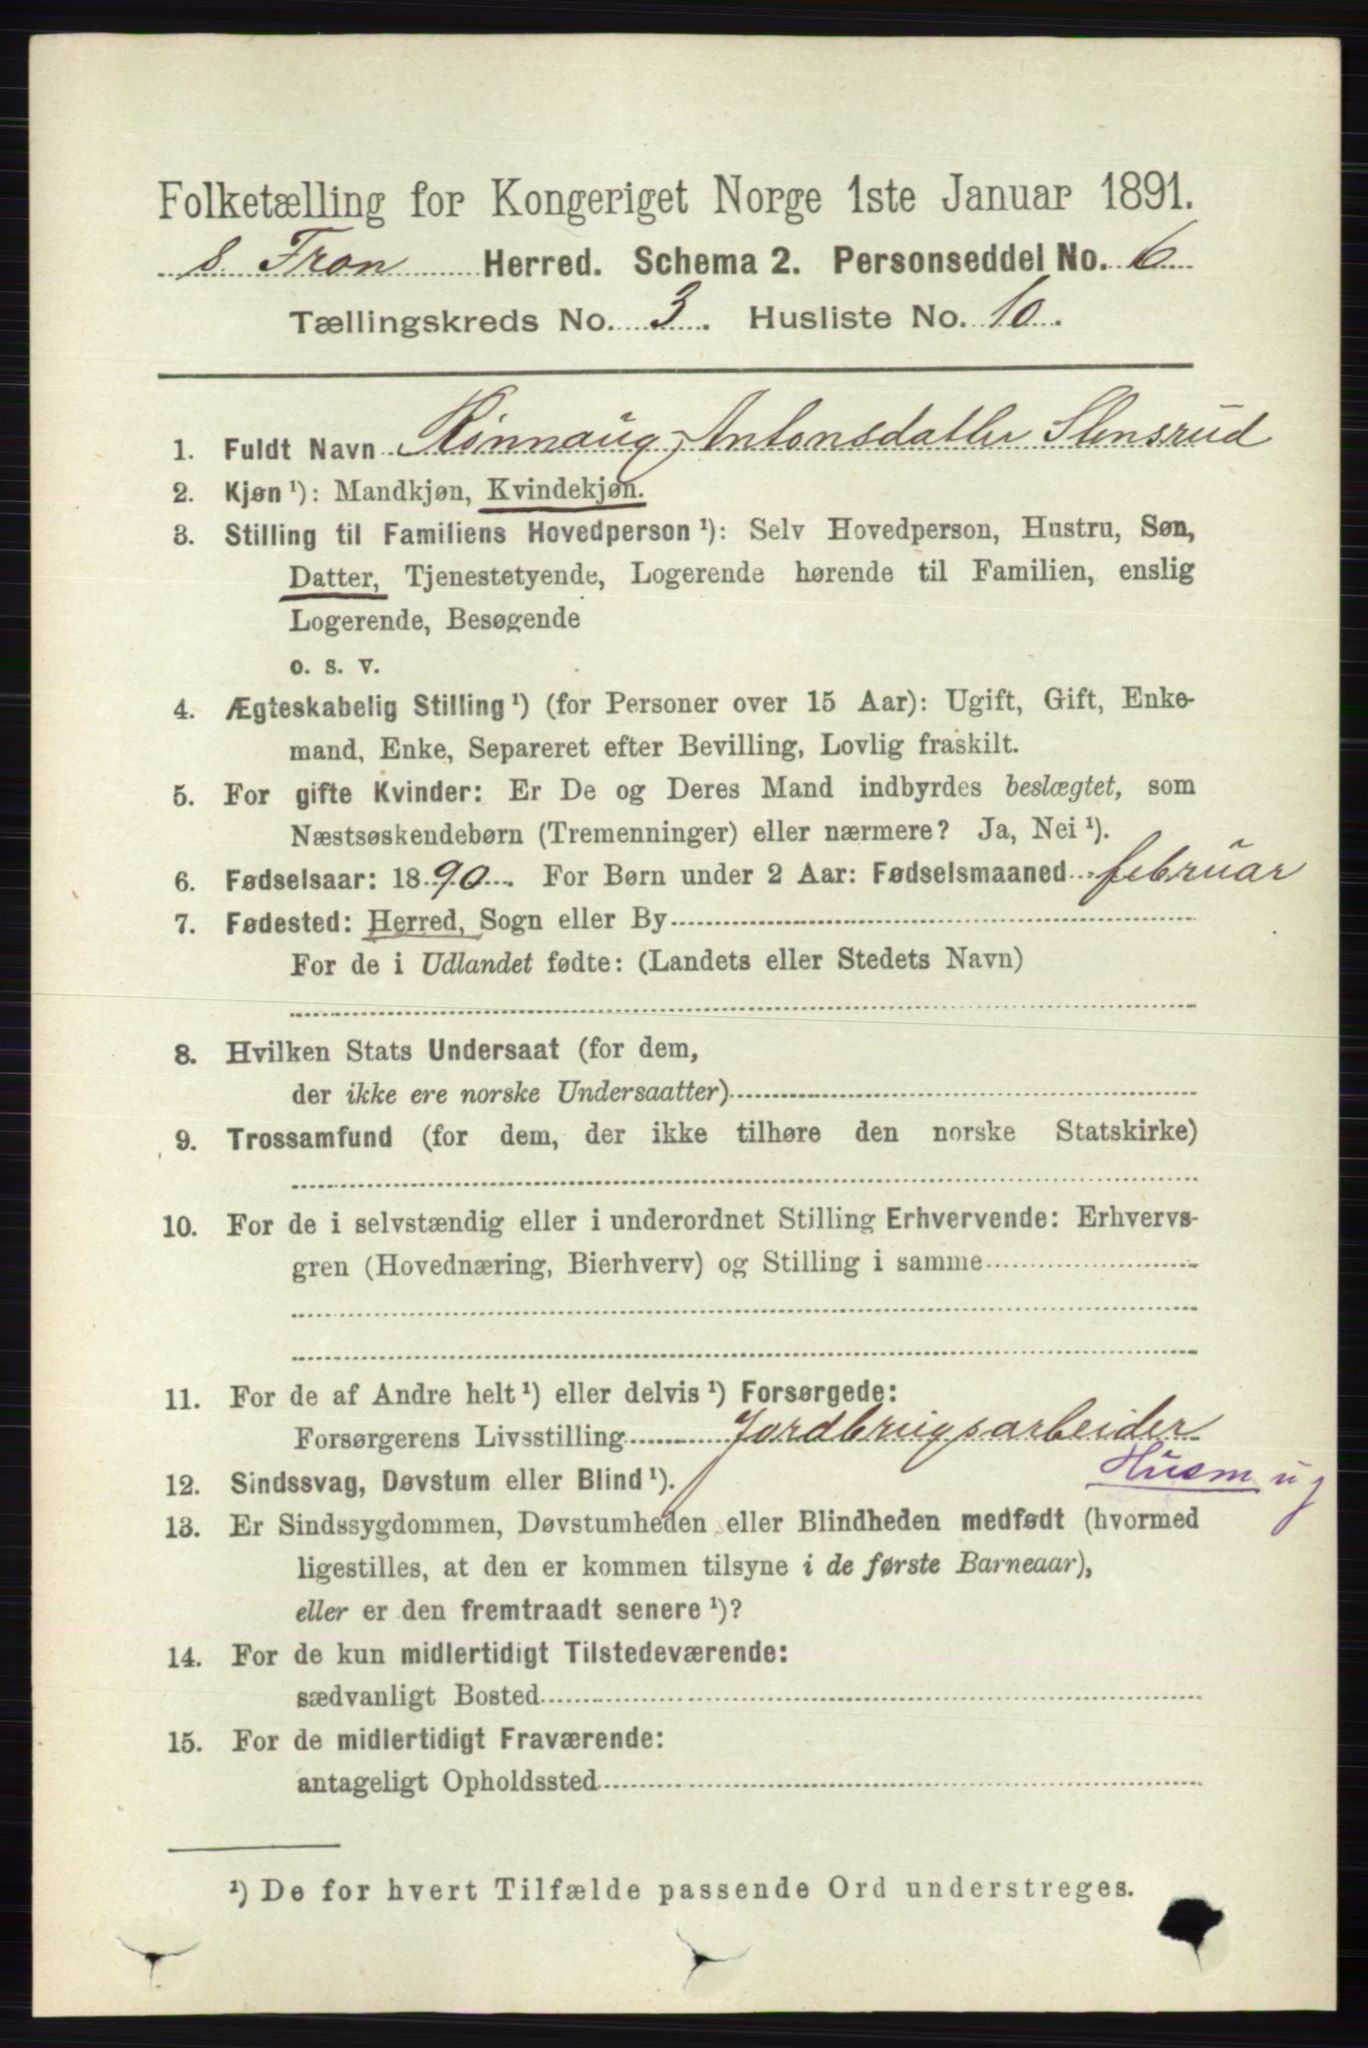 Folketælling for Kongeriget Norge 1ste Januar 1891.
S. Fron Herred. Schema 2. Personseddel No. 6
Tællingskreds No. 3. Husliste No. 10.
1. Fuldt Navn Rønnaug Antonsdatter Stensrud
2. Kjøn ¹): Mandkjøn, Kvindekjøn.
3. Stilling til Familiens Hovedperson ¹): Selv Hovedperson, Hustru, Søn,
Datter, Tjenestetyende, Logerende hørende til Familien, enslig
Logerende, Besøgende
o. s. v.
4. Ægteskabelig Stilling ¹) (for Personer over 15 Aar): Ugift, Gift, Enke-
mand, Enke, Separeret efter Bevilling, Lovlig fraskilt.
5. For gifte Kvinder: Er De og Deres Mand indbyrdes beslægtet, som
Næstsøskendebørn (Tremenninger) eller nærmere? Ja, Nei ¹).
6. Fødselsaar: 1890. For Børn under 2 Aar: Fødselsmaaned februar
7. Fødested: Herred, Sogn eller By
For de i Udlandet fødte: (Landets eller Stedets Navn)
8. Hvilken Stats Undersaat (for dem,
der ikke ere norske Undersaatter)
9. Trossamfund (for dem, der ikke tilhøre den norske Statskirke)
10. For de i selvstændig eller i underordnet Stilling Erhvervende: Erhvervs-
gren (Hovednæring, Bierhverv) og Stilling i samme
11. For de af Andre helt ¹) eller delvis ¹) Forsørgede:
Forsørgerens Livsstilling Jordbrugsarbeider
Husm u j
12. Sindssvag, Døvstum eller Blind ¹).
13. Er Sindssygdommen, Døvstumheden eller Blindheden medfødt (hvormed
ligestilles, at den er kommen tilsyne i de første Barneaar),
eller er den fremtraadt senere ¹)?
14. For de kun midlertidigt Tilstedeværende:
sædvanligt Bosted
15. For de midlertidigt Fraværende:
antageligt Opholdssted
¹) De for hvert Tilfælde passende Ord understreges.